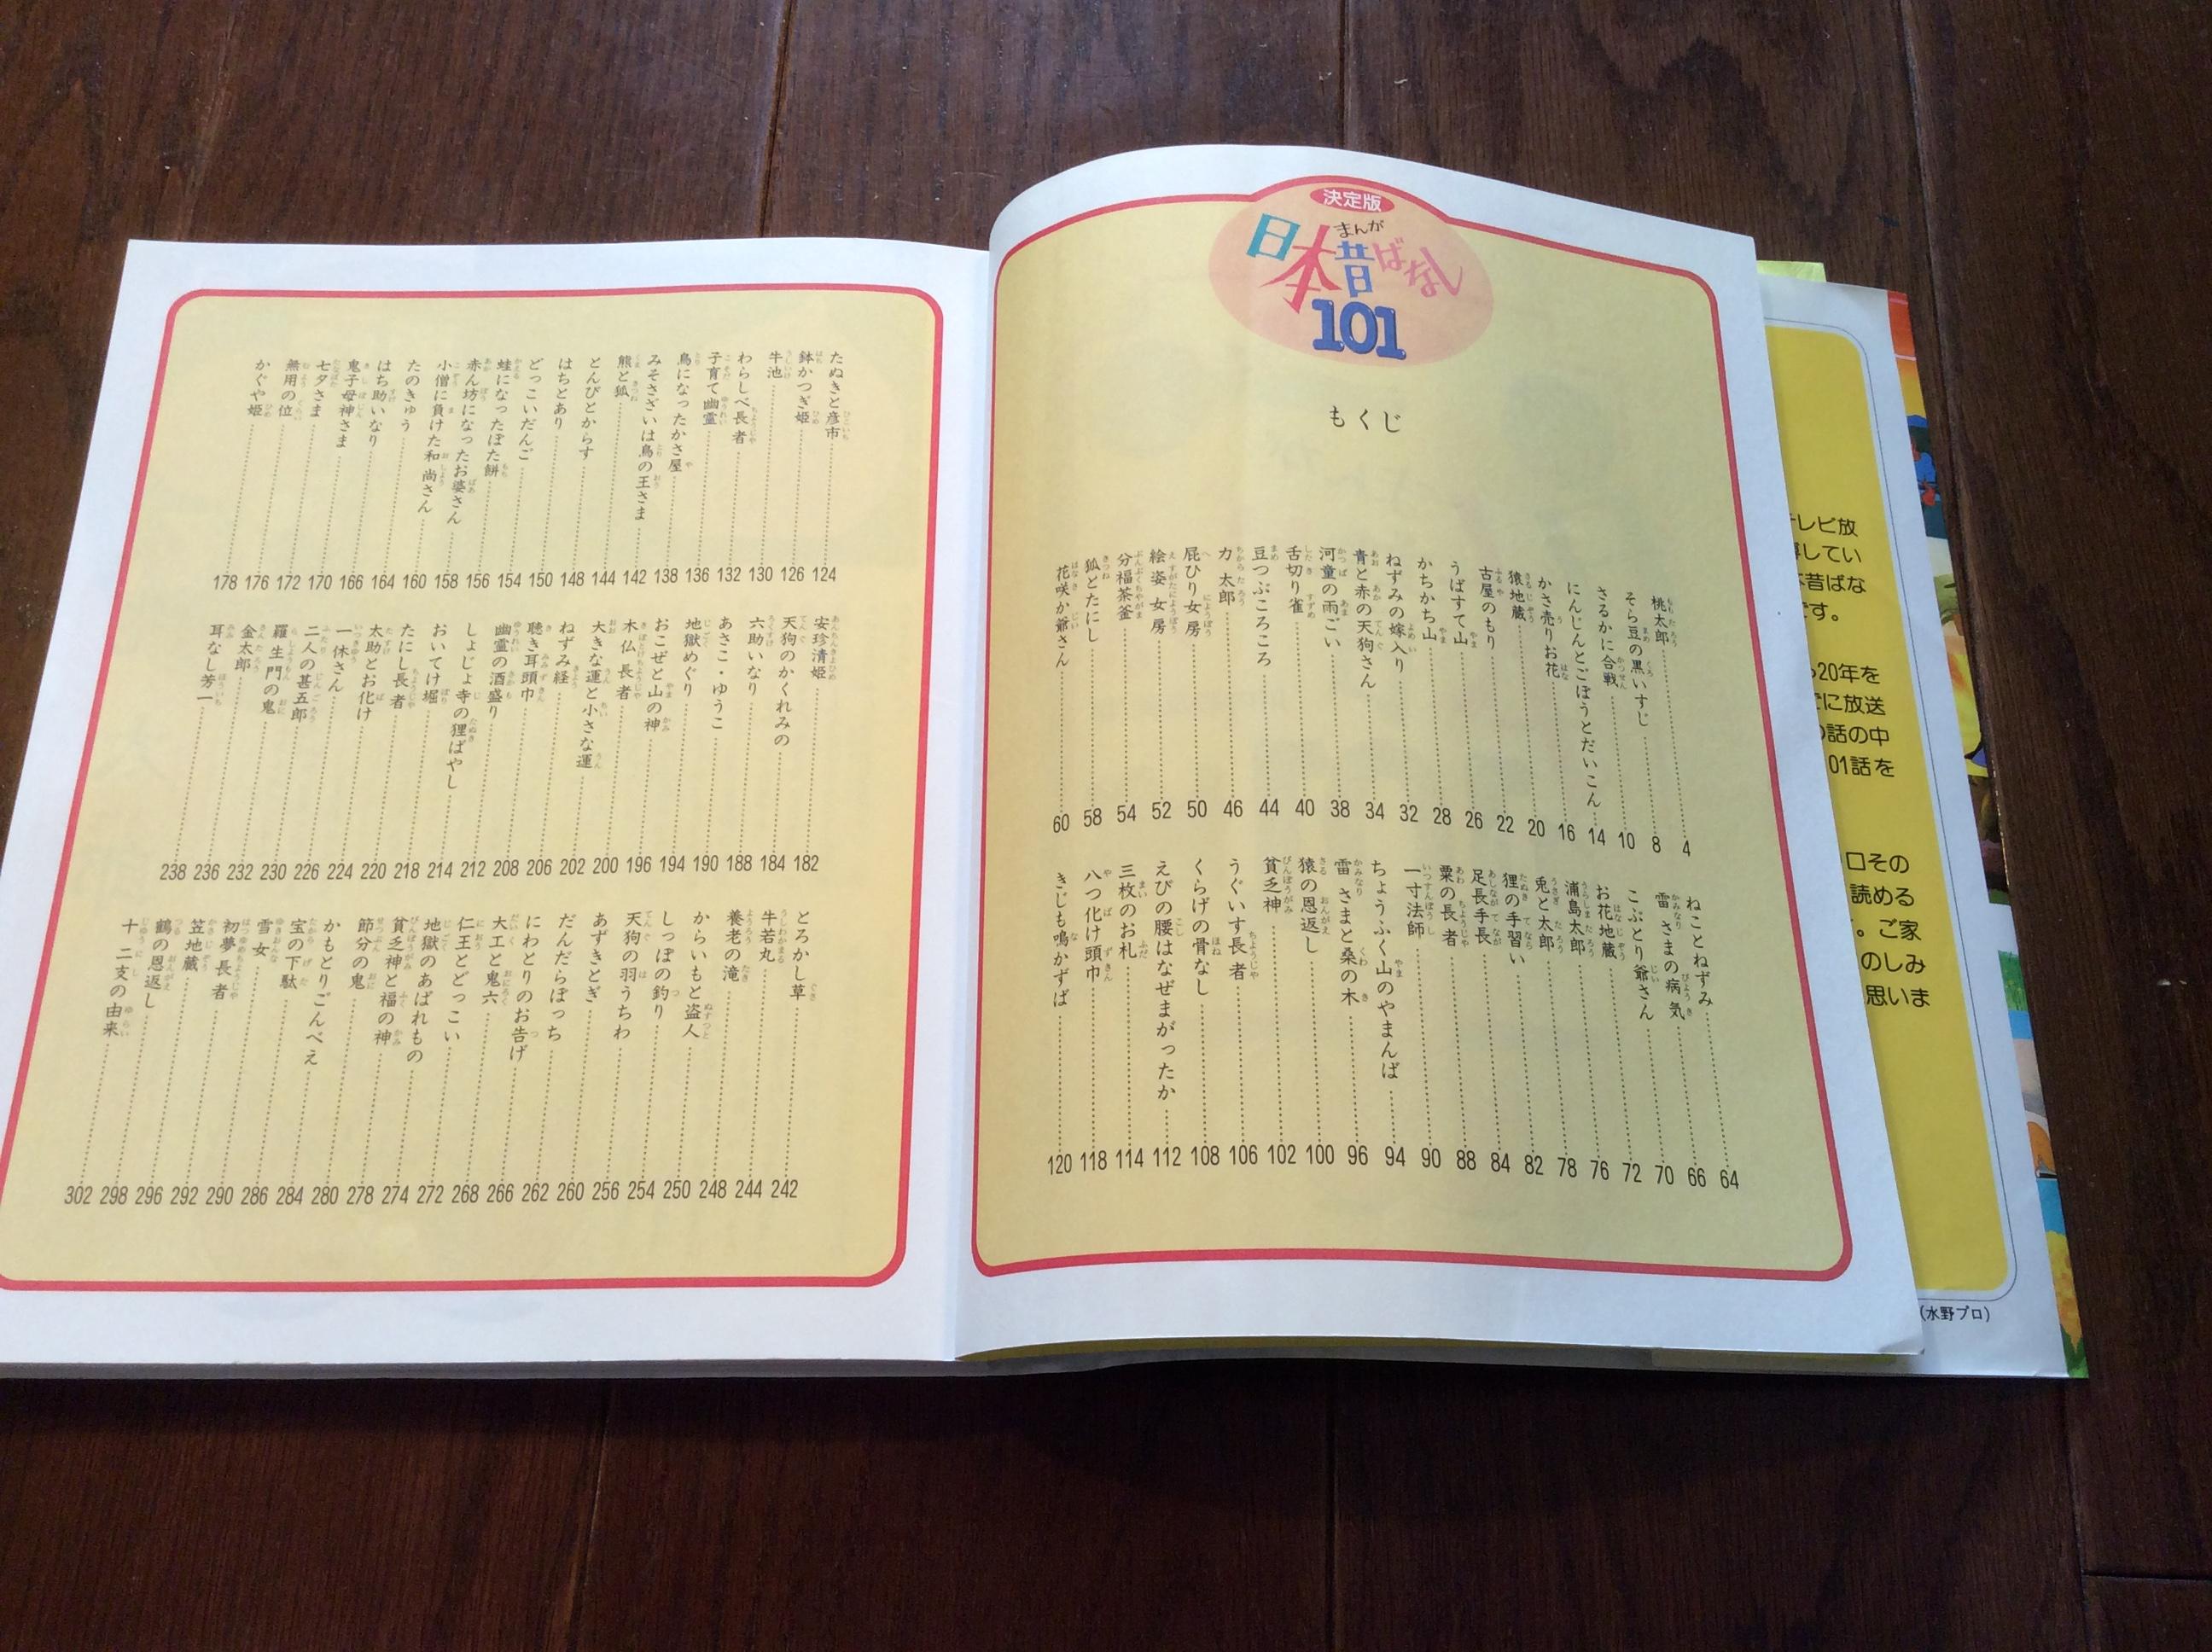 決定版
まんが
日本昔ばなし
101
もくじ
桃太郎 4
そら豆の黒いすじ 8
さるかに合戦 10
にんじんとごぼうとだいこん 14
かさ売りお花 16
猿地蔵 20
古屋のもり 22
うばすて山 26
かちかち山 28
ねずみの嫁入り 32
青と赤の天狗さん 34
河童の雨ごい 38
舌切り雀 40
豆つぶころころ 44
力太郎 46
屁ひり女房 50
絵姿女房 52
分福茶釜 54
狐とたにし 58
花咲か爺さん 60
ねことねずみ 64
雷さまの病気 66
こぶとり爺さん 70
お花地蔵 72
浦島太郎 76
兎と太郎 78
狸の手習い 82
足長手長 84
粟の長者 88
一寸法師 90
ちょうふく山のやまんば 94
雷さまと桑の木 96
猿の恩返し 100
貧乏神 102
うぐいす長者 106
くらげの骨なし 108
えびの腰はなぜまがったか 112
三枚のお札 114
八つ化け頭巾 118
きじも鳴かずば 120
たぬきと彦市 124
鉢かつぎ姫 126
牛池 130
わらしべ長者 132
子育て幽霊 136
鳥になったかさ屋 138
みそさざいは鳥の王さま 142
熊と狐 144
とんびとからす 148
はちとあり 150
どっこいだんご 154
蛙になったぼた餅 156
赤ん坊になったお婆さん 158
小僧に負けた和尚さん 160
たのきゅう 164
はち助いなり 166
鬼子母神さま 170
七夕さま 172
無用の位 176
かぐや姫 178
安珍清姫 182
天狗のかくれみの 184
六助いなり 188
あさこ・ゆうこ 190
地獄めぐり 194
おこぜと山の神 196
木仏長者 200
大きな運と小さな運 202
ねずみ経 206
聴き耳頭巾 208
幽霊の酒盛り 212
しょじょ寺の狸ばやし 214
おいてけ堀 218
たにし長者 220
太助とお化け 224
一休さん 226
二人の甚五郎 230
羅生門の鬼 232
金太郎 236
耳なし芳一 238
とろかし草 242
牛若丸 244
養老の滝 248
からいもと盗人 250
しっぽの釣り 254
天狗の羽うちわ 256
あずきとぎ 260
だんだらぼっち 262
にわとりのお告げ 266
大工と鬼六 268
仁王とどっこい 272
地獄のあばれもの 274
貧乏神と福の神 278
節分の鬼 280
かもとりごんべえ 284
宝の下駄 286
雪女 290
初夢長者 292
笠地蔵 296
鶴の恩返し 298
十二支の由来 302
テレビ放
してい
昔ばな
です。
20年を
に放送
話の中
01話を
口その
読める
。ご家
のしみ
思いま
(水野プロ)